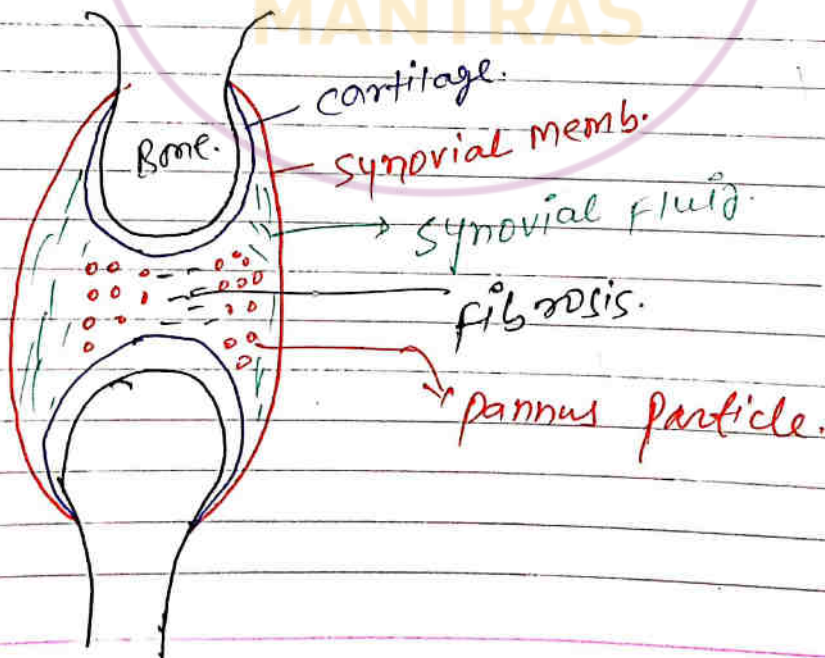 MANTRAS
cartilage.
Bone.
synovial memb.
synovial Fluid.
fibrosis.
pannus particle.